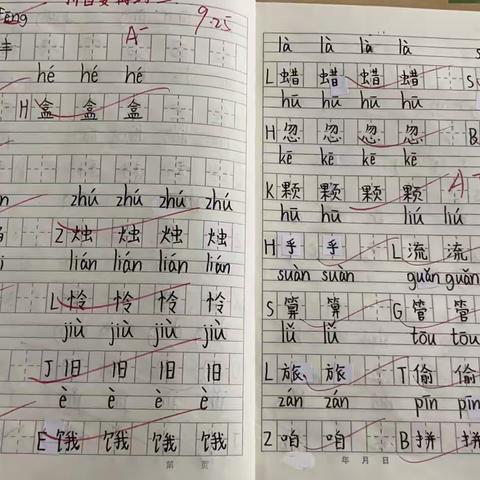 9.25
A-
hé hé hé
H 盒 盒 盒
zhú zhú zhú zhú
Z 烛 烛 烛 烛
lián lián lián lián
L 怜 怜 怜 怜
jiù jiù jiù jiù
J 旧 旧 旧 旧
è è è è
E 饿 饿 饿 饿
第 页
là là là là
L 蜡 蜡 蜡 蜡 S
hū hū hū hū
H 忽 忽 忽 忽 B
kē kē kē kē
K 颗 颗 颗 颗 A-
hū hū liú liú
H 乎 乎 L 流 流
suàn suàn guǎn guǎn
S 算 算 G 管 管
lǚ lǚ tōu tōu
L 旅 旅 T 偷 偷
zán zán pīn pīn
Z 咱 咱 B 拼 拼
年 月 日